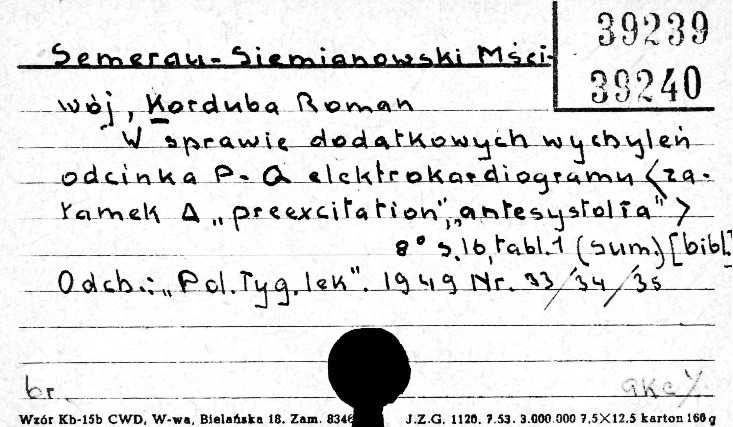 39239
39240
Semerau-Siemianowski Mści-
wój, Korduba Roman
W sprawie dodatkowych wychyleń
odcinka P-Q elektrokardiogramu <za-
łamek Δ „preexcitation”, „antesystolia”>
8° s. 16, tabl. 1 (sum.) [bibl.]
Odb.: „Pol. Tyg. lek”. 1949 Nr. 33/34/35
br.
Wzór Kb-15b CWD, W-wa, Bielańska 18. Zam. 8346 J.Z.G. 1120. 7.53. 3.000.000 7,5×12,5 karton 160 g